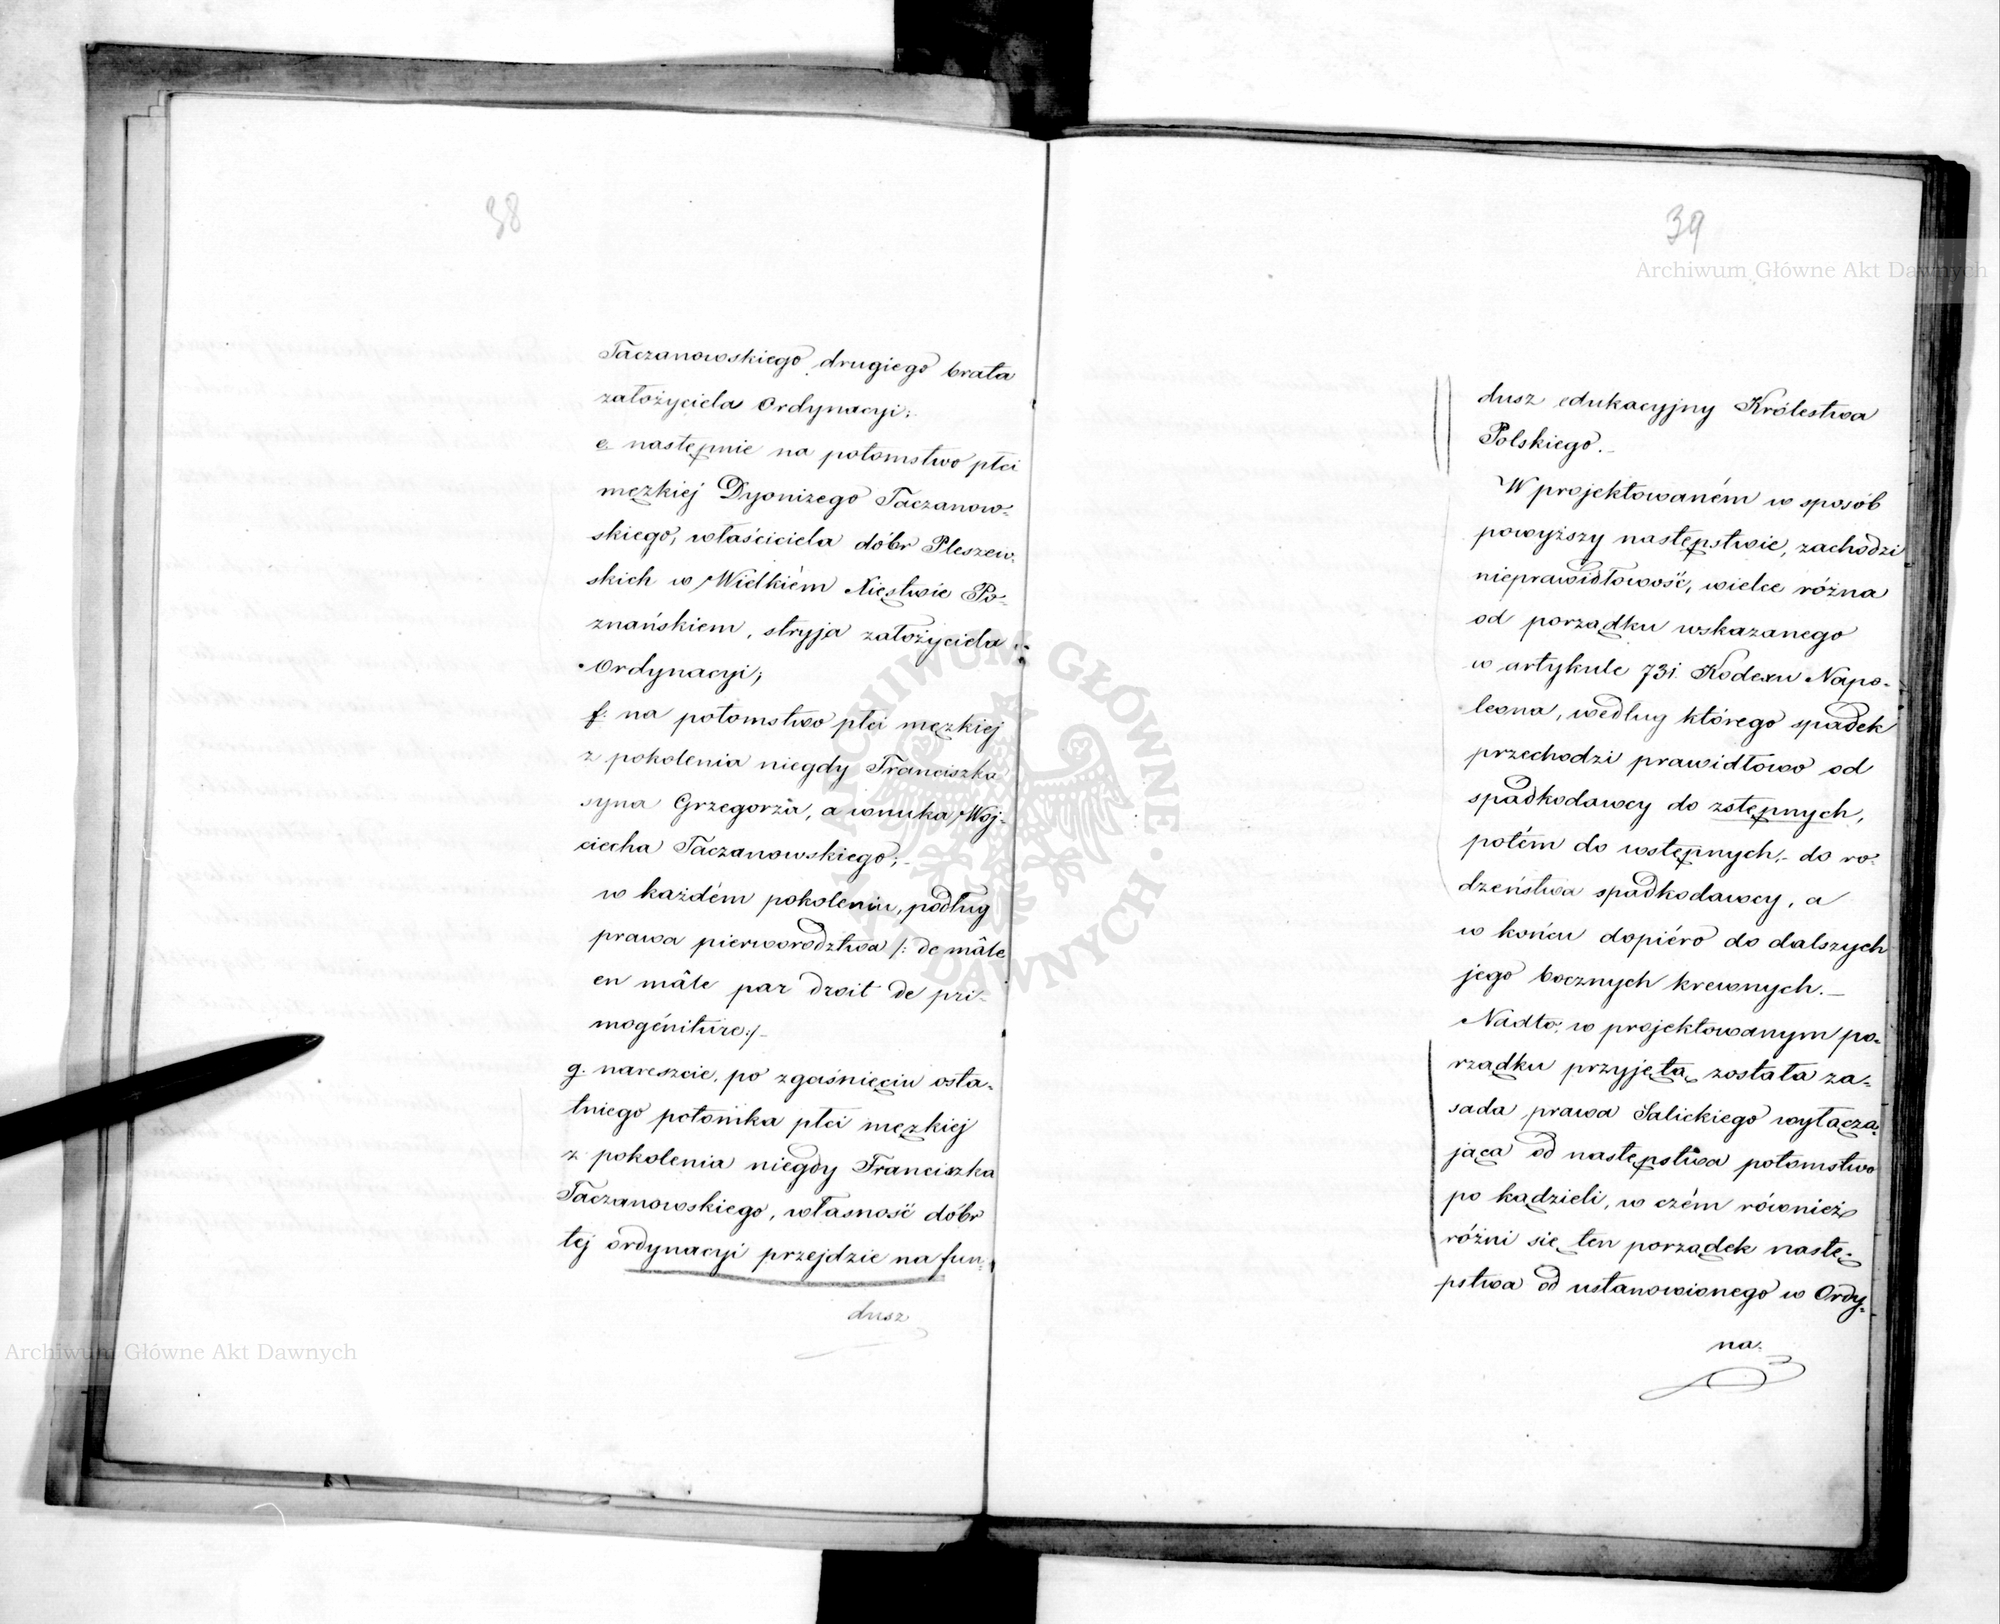 38
Taczanowskiego drugiego brata
założyciela Ordynacyi;
e. następnie na potomstwo płci
męzkiej Dyonizego Taczanow-
skiego, właściciela dóbr Pleszew-
skich w Wielkiém Xięstwie Po-
znańskiem, stryja założyciela
Ordynacyi;
f. na potomstwo płci męzkiej
z pokolenia niegdy Franciszka
syna Grzegorza, a wnuka Woj-
ciecha Taczanowskiego;
w każdém pokoleniu, podług
prawa pierworodztwa /: de mâle
en mâle par droit de pri-
mogéniture:/
g. nareszcie, po zgaśnięciu osta-
tniego potomka płci męzkiej
z pokolenia niegdy Franciszka
Taczanowskiego, własność dóbr
tej ordynacyi przejdzie na fun-
dusz
39
dusz edukacyjny Królestwa
Polskiego.
W projektowaném w sposób
powyższy następstwie, zachodzi
nieprawidłowość, wielce różna
od porządku wskazanego
w artykule 731. Kodexu Napo-
leona, według którego spadek
przechodzi prawidłowo od
spadkodawcy do zstępnych,
potém do wstępnych, do ro-
dzeństwa spadkodawcy, a
w końcu dopiéro do dalszych
jego bocznych krewnych.
Nadto, w projektowanym po-
rządku przyjęta została za-
sada prawa Salickiego wyłącza-
jąca od następstwa potomstwo
po kądzieli, w czém również
różni się ten porządek nastę-
pstwa od ustanowionego w Ordy-
na-
Archiwum Główne Akt Dawnych
Archiwum Główne Akt Dawnych
ARCHIWUM GŁÓWNE AKT DAWNYCH